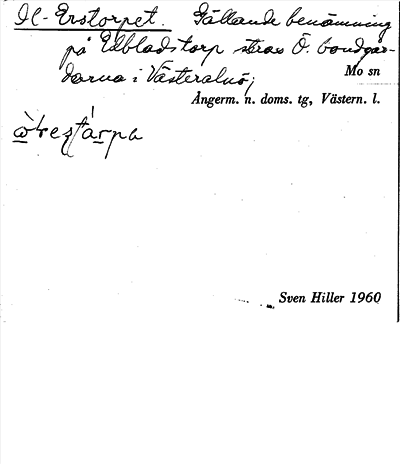 Ol-Erstorpet. Gällande benämning
på Edbladstorp strax Ö. bondgår-
darna i Västeralnö;
Mo sn
Ångerm. n. doms. tg, Västern. l.
Sven Hiller 1960